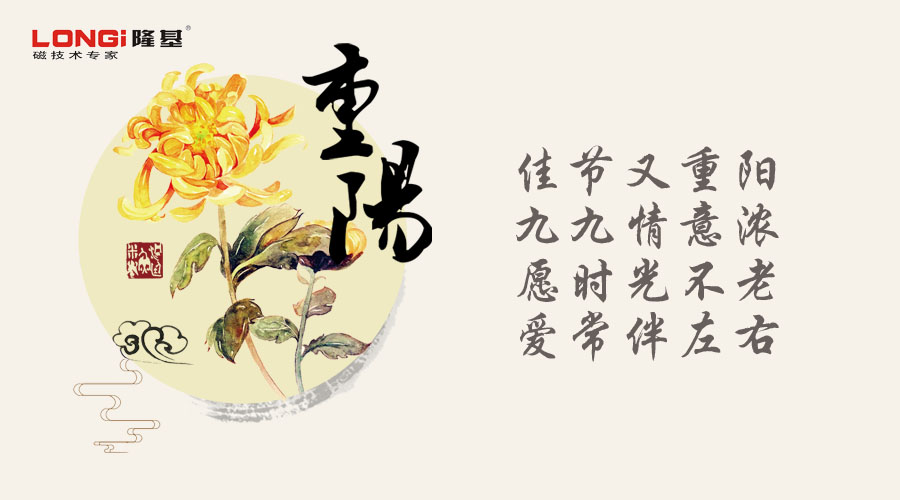 LONGi隆基®
磁技术专家
重陽
佳节又重阳
九九情意浓
愿时光不老
爱常伴左右